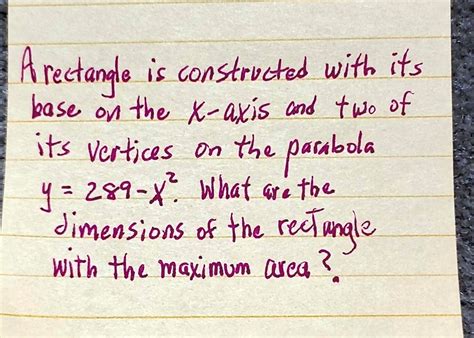 A rectangle is constructed with its
base on the x-axis and two of
its vertices on the parabola
y = 289-x². What are the
dimensions of the rectangle
with the maximum area?